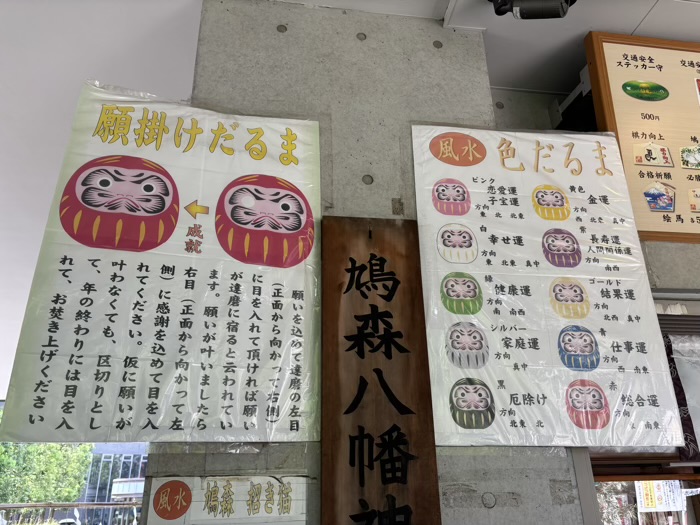 願掛けだるま
成就
願いを込めて達磨の左目
（正面から向かって右側）
に目を入れて頂ければ願い
が達磨に宿ると云われてい
ます。願いが叶いましたら
右目（正面から向かって左
側）に感謝を込めて目を入
れてください。仮に願いが
叶わなくても、区切りとし
て、年の終わりには目を入
れて、お焚き上げください
鳩森八幡神
風水 色だるま
ピンク
恋愛運
子宝運
方向
東 北 北東
黄色
金運
方向
西 北老 真中
白
幸せ運
方向
東 北東 真中
紫
長寿運
人間関係運
方向
南西
緑
健康運
方向
南 南西
ゴールド
結果運
方向
北西 真中
シルバー
家庭運
方向
真中
青
仕事運
方向
西 南東
黒
厄除け
方向
北東 北
赤
総合運
方向
南東
風水 鳩森 招き猫
交通安全
ステッカー守
500円
棋力向上
合格祈願
絵馬